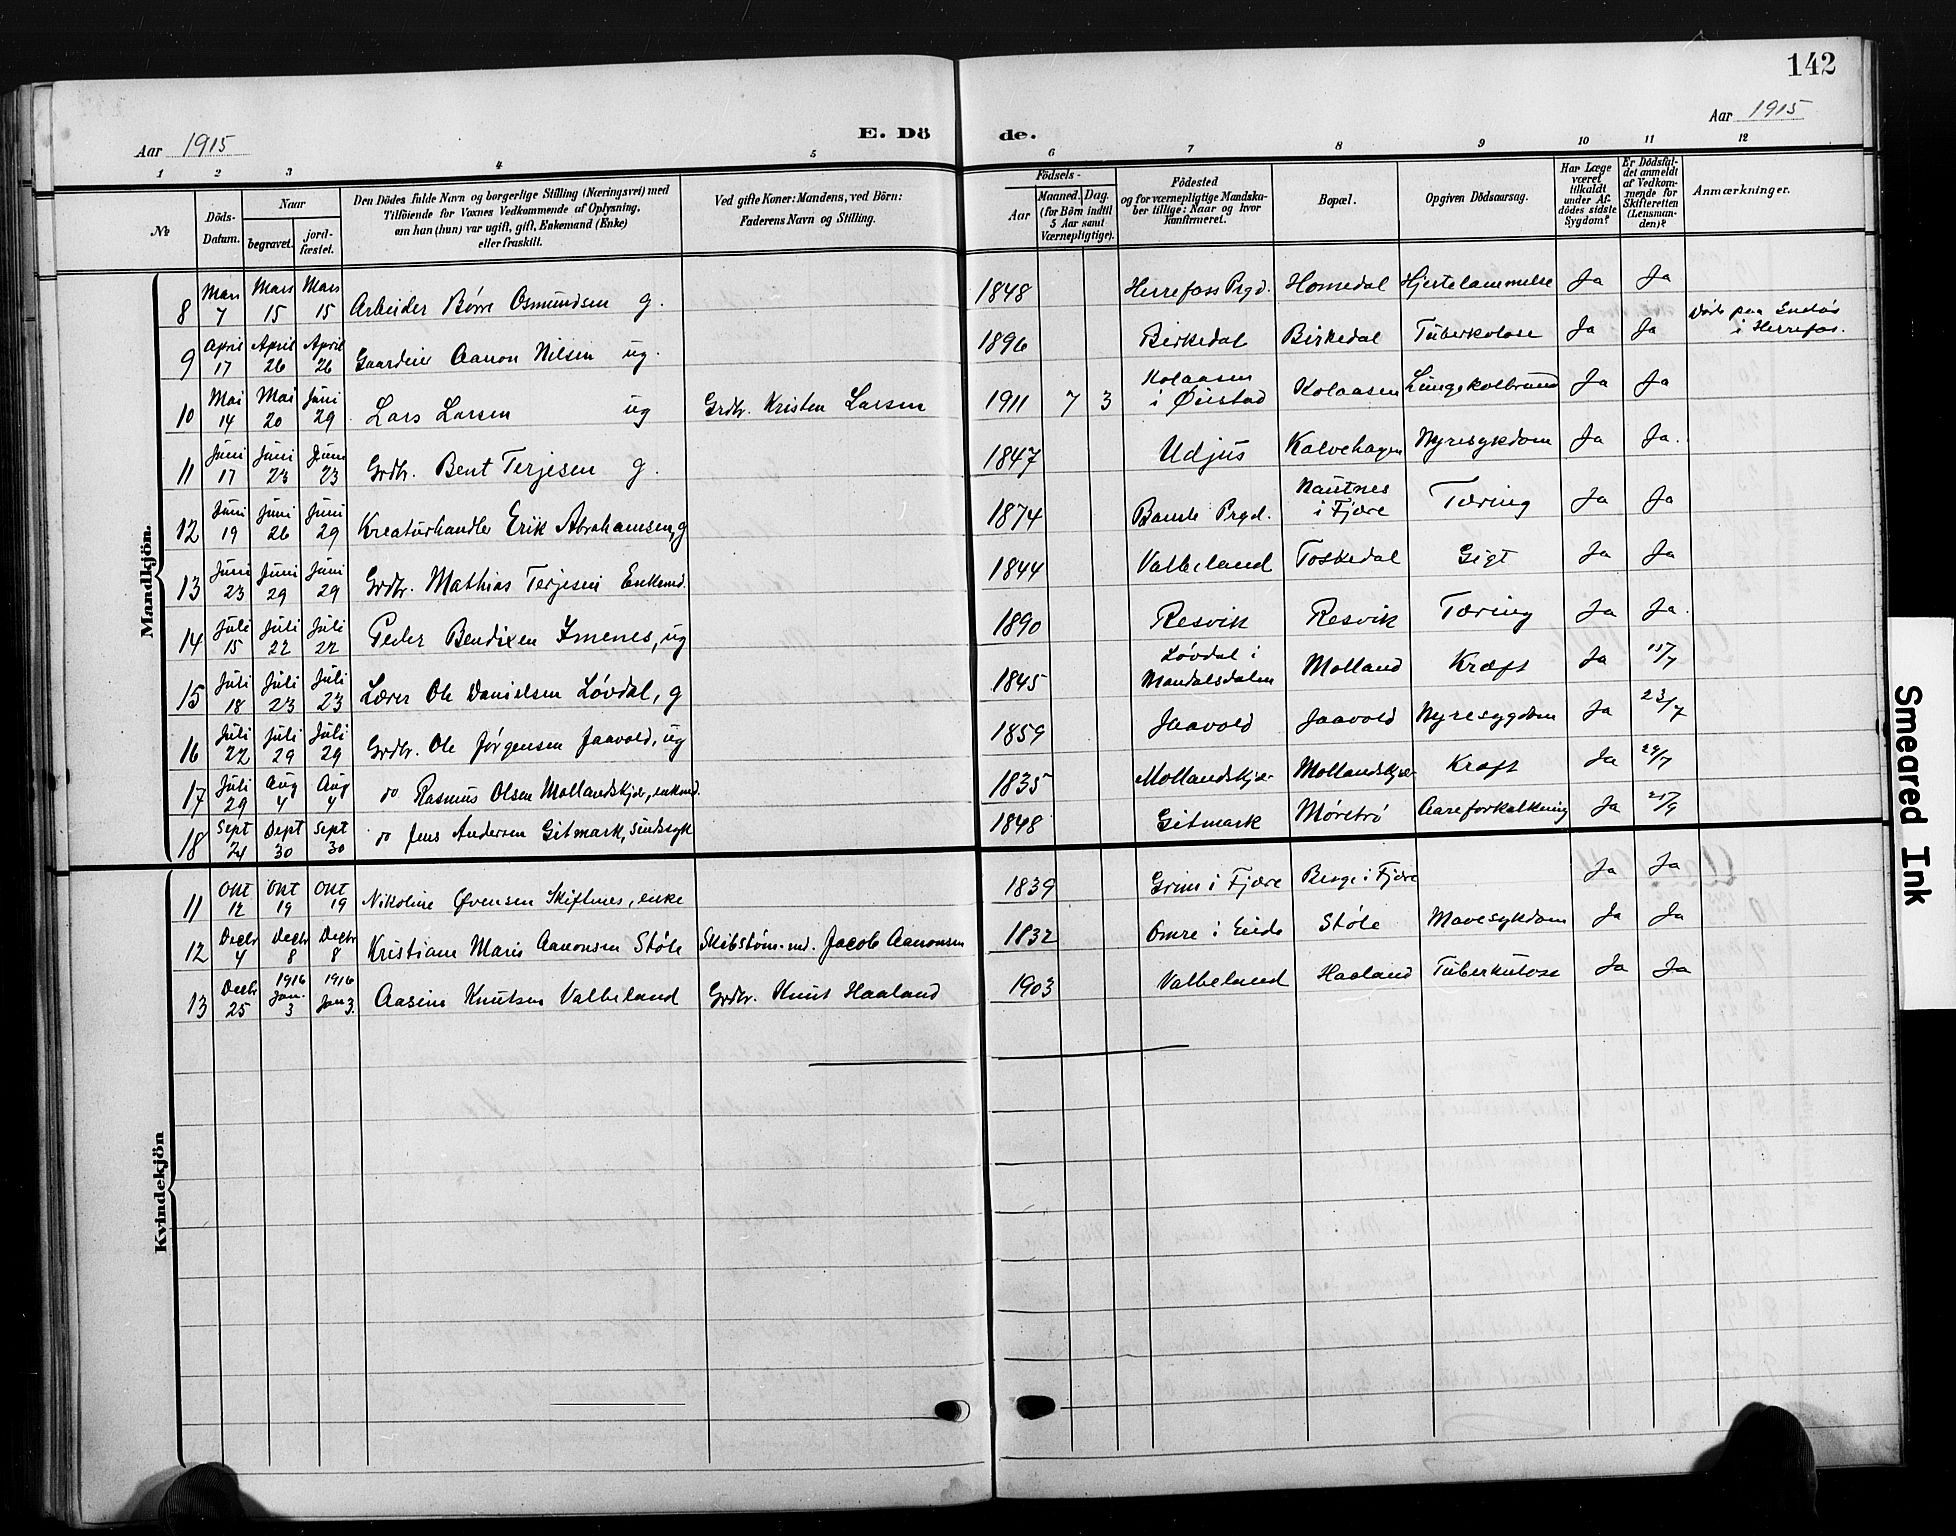 142
Aar 1915
E. Dö
de.
Aar 1915
1 2 3 4 5 6 7 8 9 10 11 12
№
Döds-Datum.
Naar
begravet.
jord-fæstet.
Den Dödes fulde Navn og borgerlige Stilling (Næringsvei) med
Tilföiende for Voxnes Vedkommende af Oplysning,
om han (hun) var ugift, gift, Enkemand (Enke)
eller fraskilt.
Ved gifte Koner: Mandens, ved Börn:
Faderens Navn og Stilling.
Födsels-
Aar
Maaned. Dag.
(for Börn indtil
5 Aar samt
Værnepligtige).
Födested
og for værnepligtige Mandska-
ber tillige: Naar og hvor
konfirmeret.
Bopæl.
Opgiven Dödsaarsag.
Har Læge
været
tilkaldt
under Af-
dödes sidste
Sygdom?
Er Dödsfal-
det anmeldt
af Vedkom-
mende for
Skifteretten
(Lensman-
den)?
Anmærkninger.
Mandkjön.
8 Mars 7 Mars 15 Mars 15 Arbeider Børre Osmundsen g. 1848 Herrefoss Prgd. Homedal Hjertelammelse Ja Ja
9 April 17 April 26 April 26 Gaardeier Aanon Nilsen ug. 1896 Birkedal Birkedal Tuberkolose Ja Ja Døde paa
i Herrefos.
10 Mai 14 Mai 20 Juni 29 Lars Larsen ug Grdbr. Kristen Larsen 1911 7 3 Kolaasen i Øiestad Kolaasen Lungekolbrand Ja Ja
11 Juni 17 Juni 23 Juni 23 Grdbr. Bent Terjesen g. 1847 Udjus Kalvehagen Nyresykdom Ja Ja.
12 Juni 19 Juni 26 Juni 29 Kreaturhandler Erik Abrahamsen, g 1874 Bamle Prgd. i Fjære Tæring Ja Ja
13 Juni 23 Juni 29 Juni 29 Grdbr. Mathias Terjesen Enkemd. 1844 Valbeland Toskedal Gigt Ja Ja
14 Juli 15 Juli 22 Juli 22 Peder Bendixen Imenes, ug 1890 Resvik Resvik Tæring Ja Ja.
15 Juli 18 Juli 23 Juli 23 Lærer Ole Danielsen Løvdal, g 1845 Løvdal i Mandalsdalen Molland Kræft Ja 15/7
16 Juli 22 Juli 29 Juli 29 Grdbr. Ole Jørgensen Jaavold, ug 1859 Jaavold Jaavold Nyresygdom Ja 23/7
17 Juli 29 Aug 4 Aug 4 do Rasmus Olsen Mollandskjær, enkemd. 1835 Mollandskjær Mollandskjær Kræft Ja 29/7
18 Sept 24 Sept 30 Sept 30 do Jens Andersen Gitmark, sindssyk 1848 Gitmark Møretrø Aareforkalkning Ja 25/9
Kvindekjön
11 Okt 12 Okt 19 Okt 19 Nikoline Øvensen Skiftenes, enke 1839 Grim i Fjære Berge i Fjære Ja Ja
12 Decbr 4 Decbr 8 Decbr 8 Kristiane Marie Aanonsen Støle Skibstøm.md. Jacob Aanonsen 1832 Omre i Eide Støle Mavesykdom Ja Ja
13 Decbr 25 1916 Jan. 3 1916 Jan 3. Aasine Knutsen Valbeland Grdbr. Knut Haaland 1903 Valbeland Haaland Tuberkulose Ja Ja
Smeared Ink